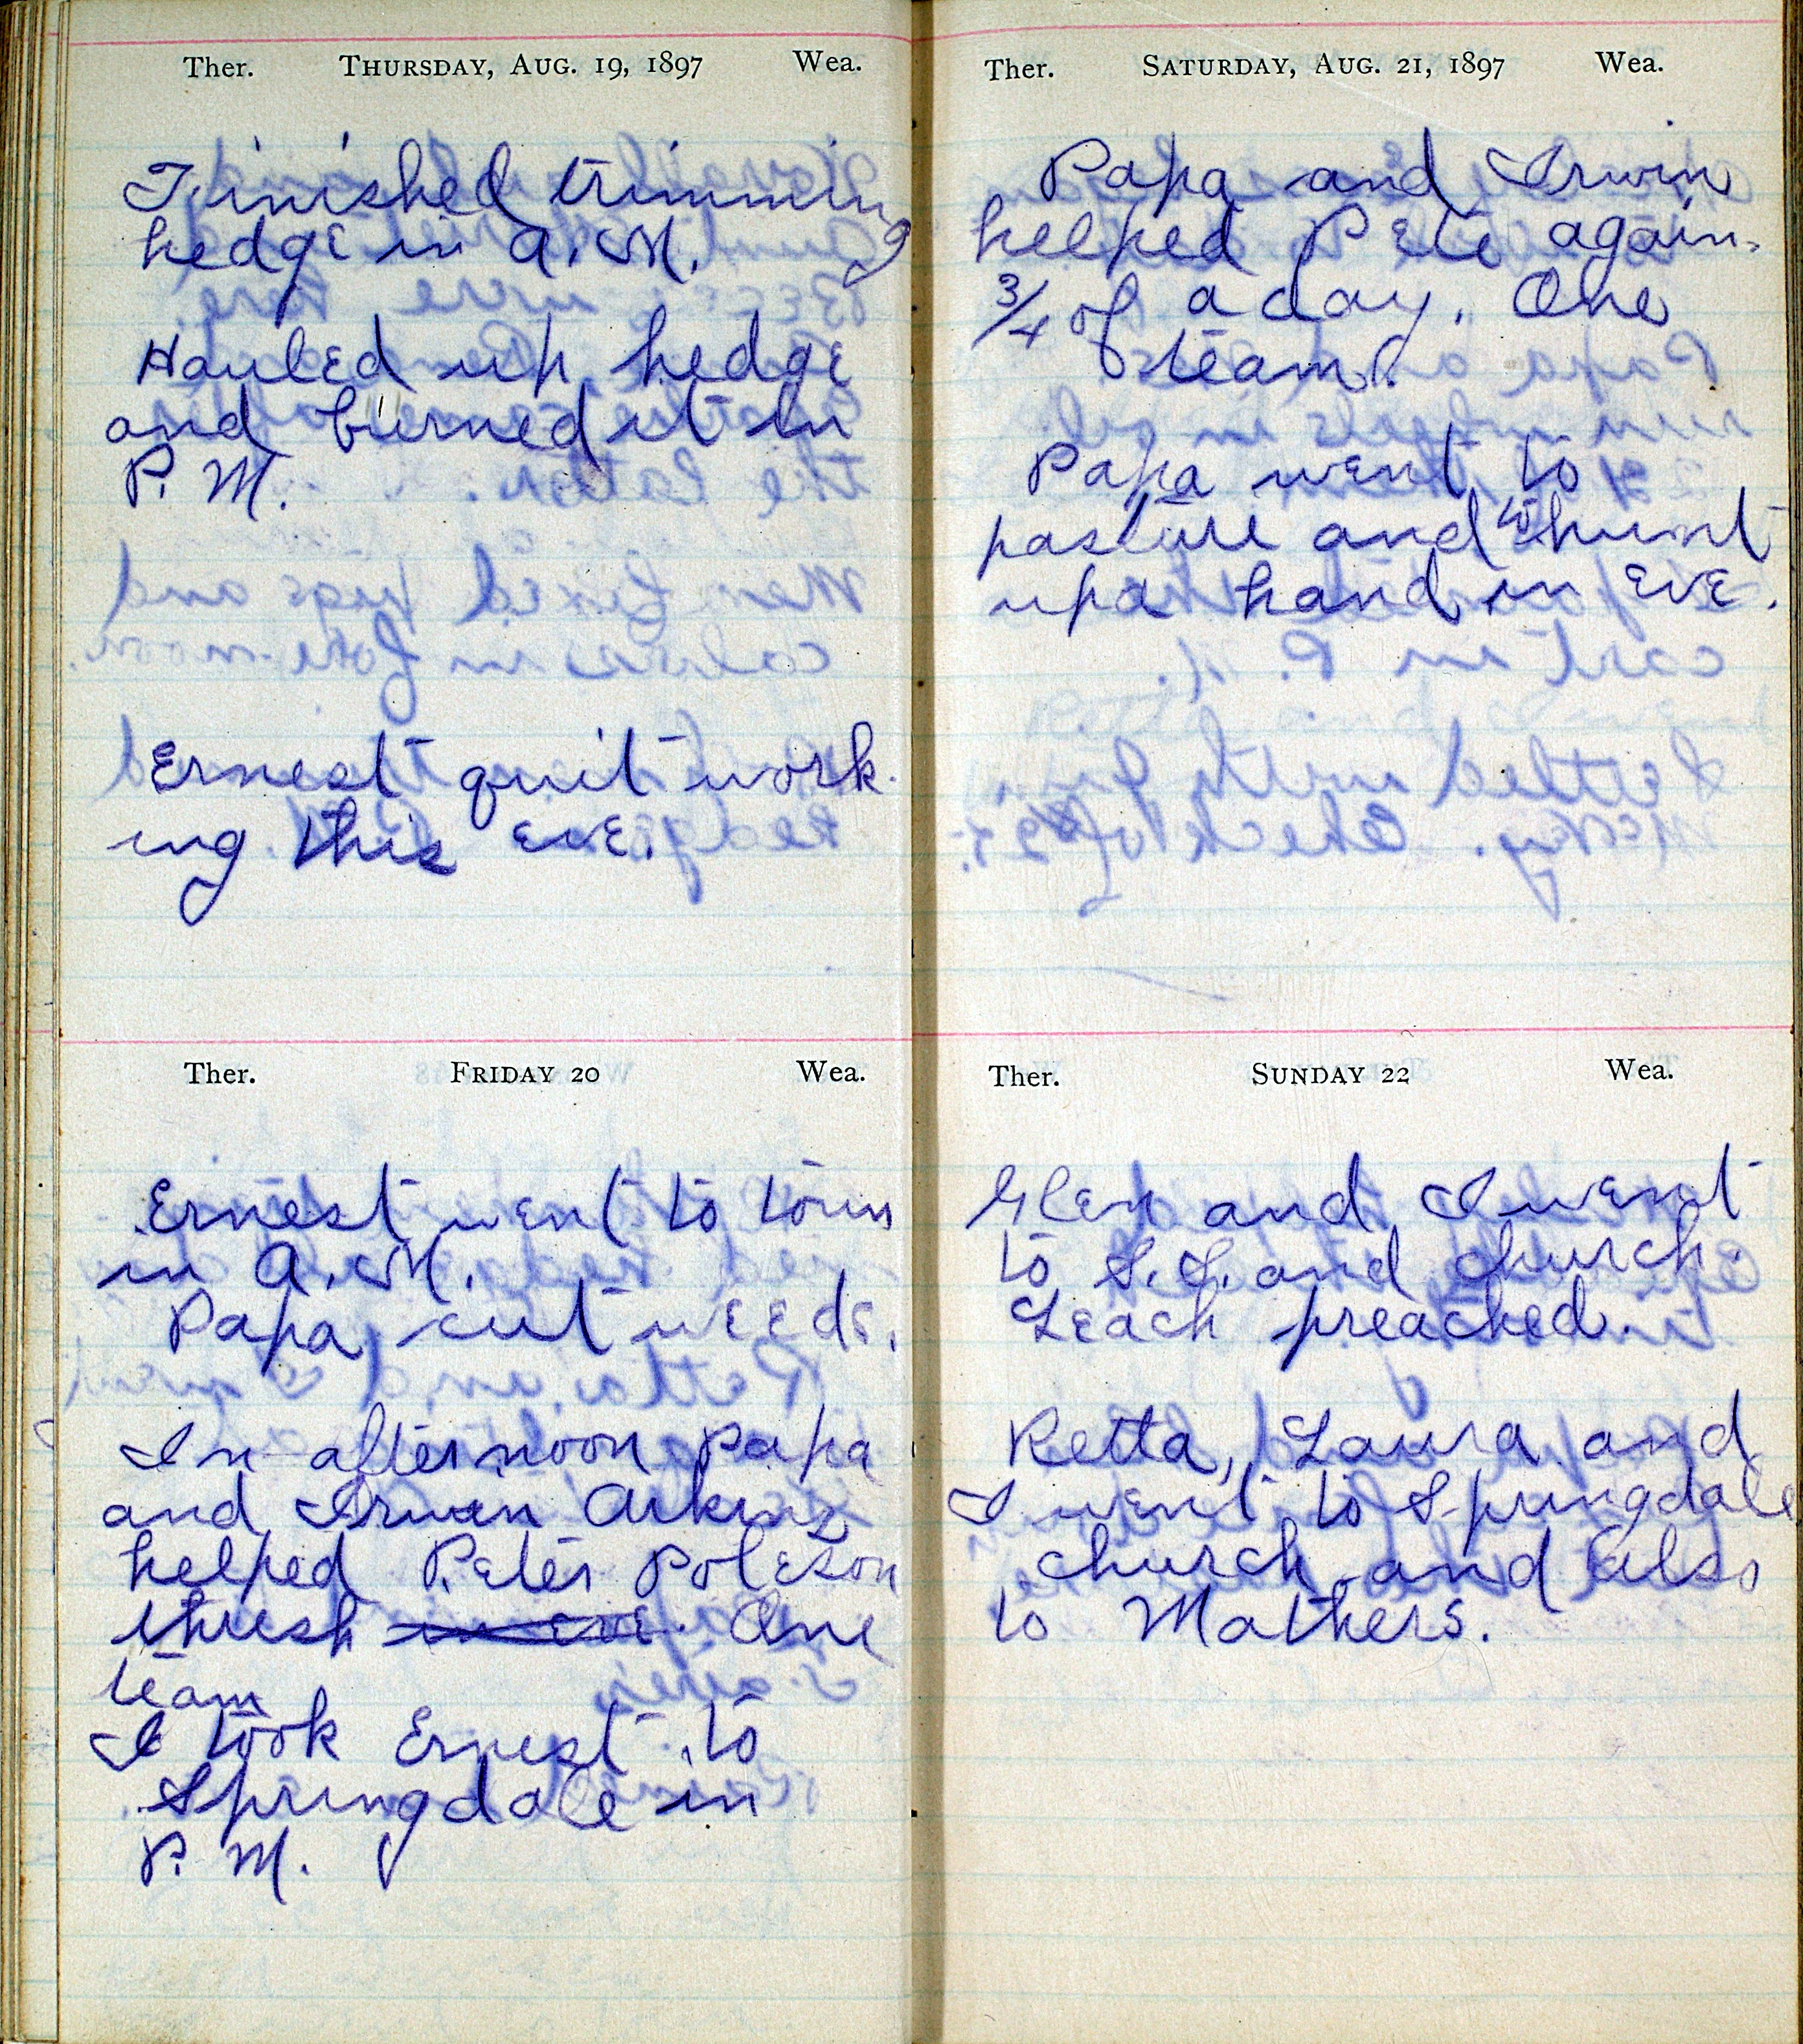 Ther. THURSDAY, AUG. 19, 1897 Wea.
Finished trimming
hedge in A.M.
Hauled up hedge
and burned it in
P. M.
Ernest quit work-
ing this eve.
Ther. FRIDAY 20 Wea.
Ernest went to town
in A.M.
Papa cut weeds.
In afternoon Papa
and Irwin Arkins
helped Peter Poleson
thresh in eve. One
team
I took Ernest to
Springdale in
P. M.
Ther. SATURDAY, AUG. 21, 1897 Wea.
Papa and Irwin
helped Pete again.
3/4 of a day. One
team.
Papa went to
pasture and to hunt
up a hand in eve.
Ther. SUNDAY 22 Wea.
Glen and I went
to S.S. and church.
Leach preached.
Retta, Laura and
I went to Springdale
church and also
to Mathers.